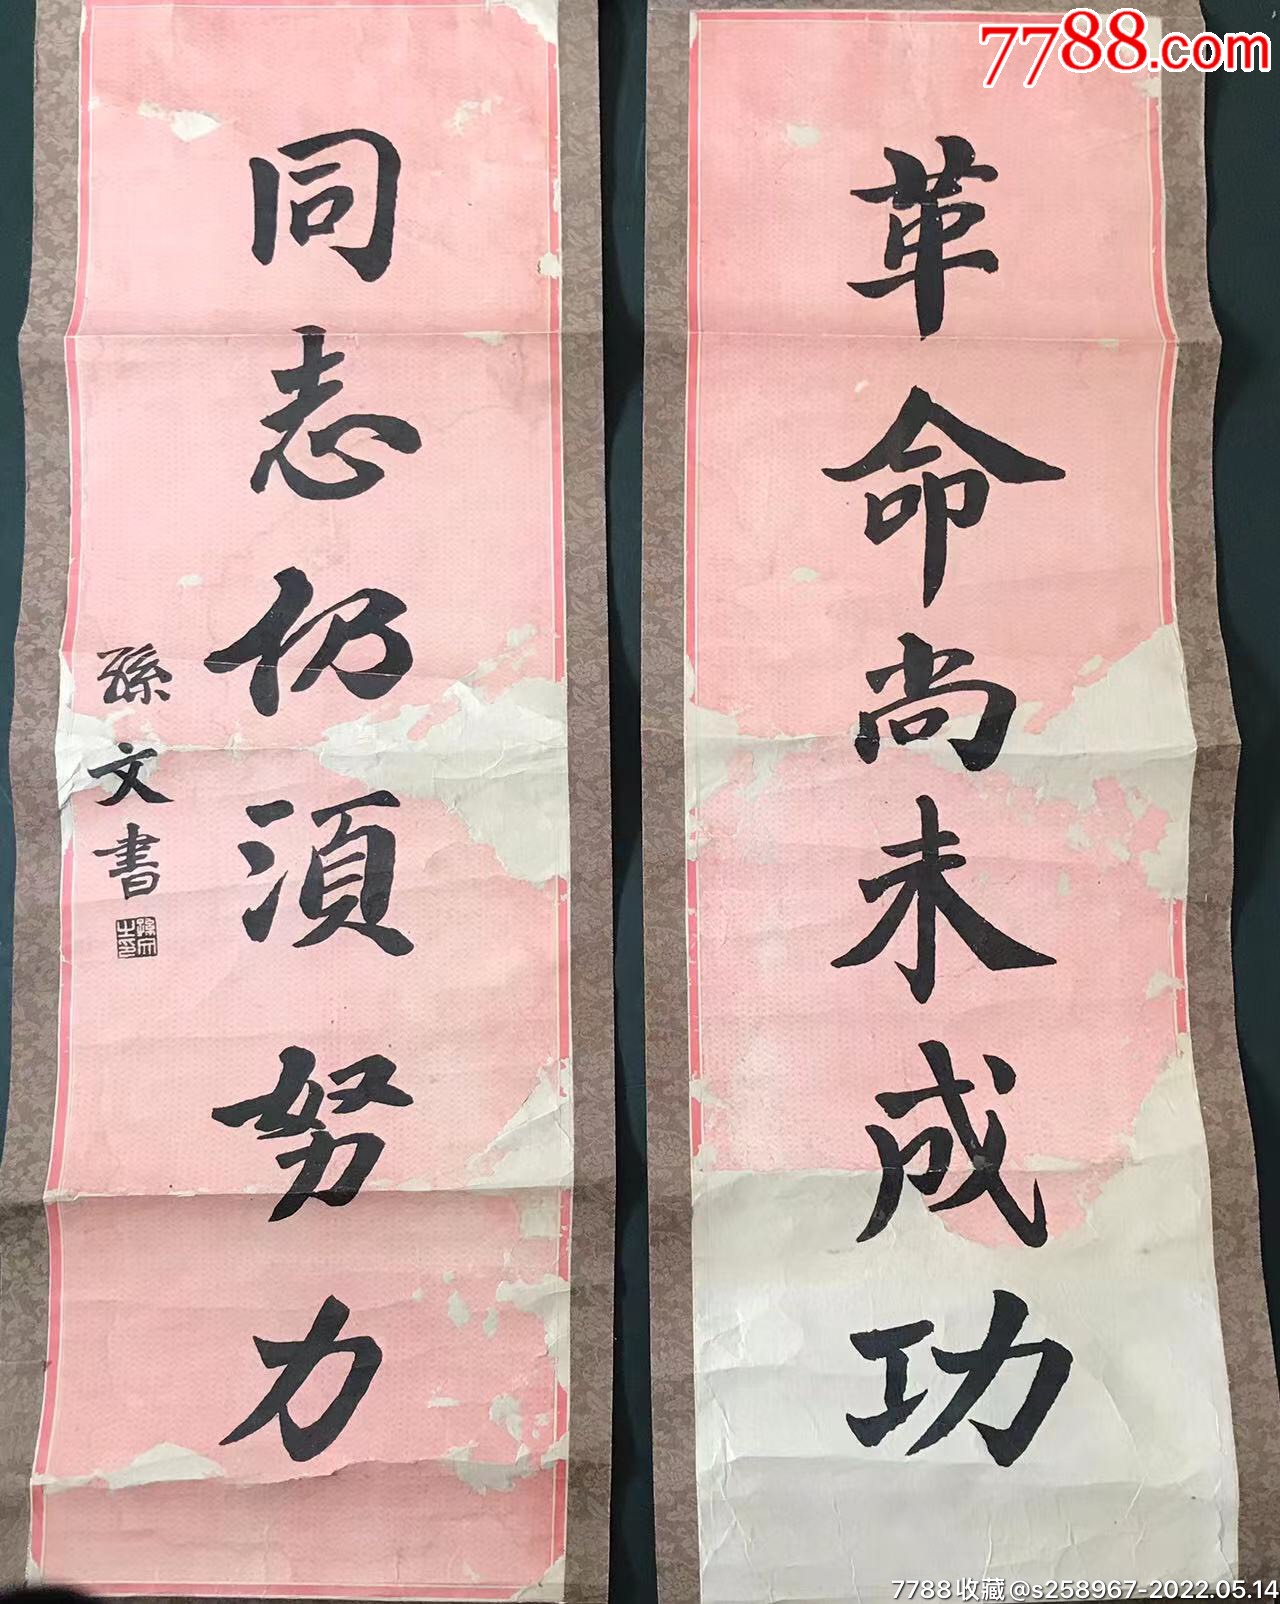 7788.com
革命尚未成功
同志仍須努力
孫文書
孫文之印
7788收藏@s258967-2022.05.14